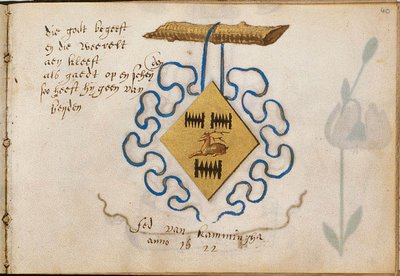 40
die godt begeeft
en die weerelt
aen kleeft
als gaedt op en
soo heeft hy geen van
beyden
van kamminga
anno 1622